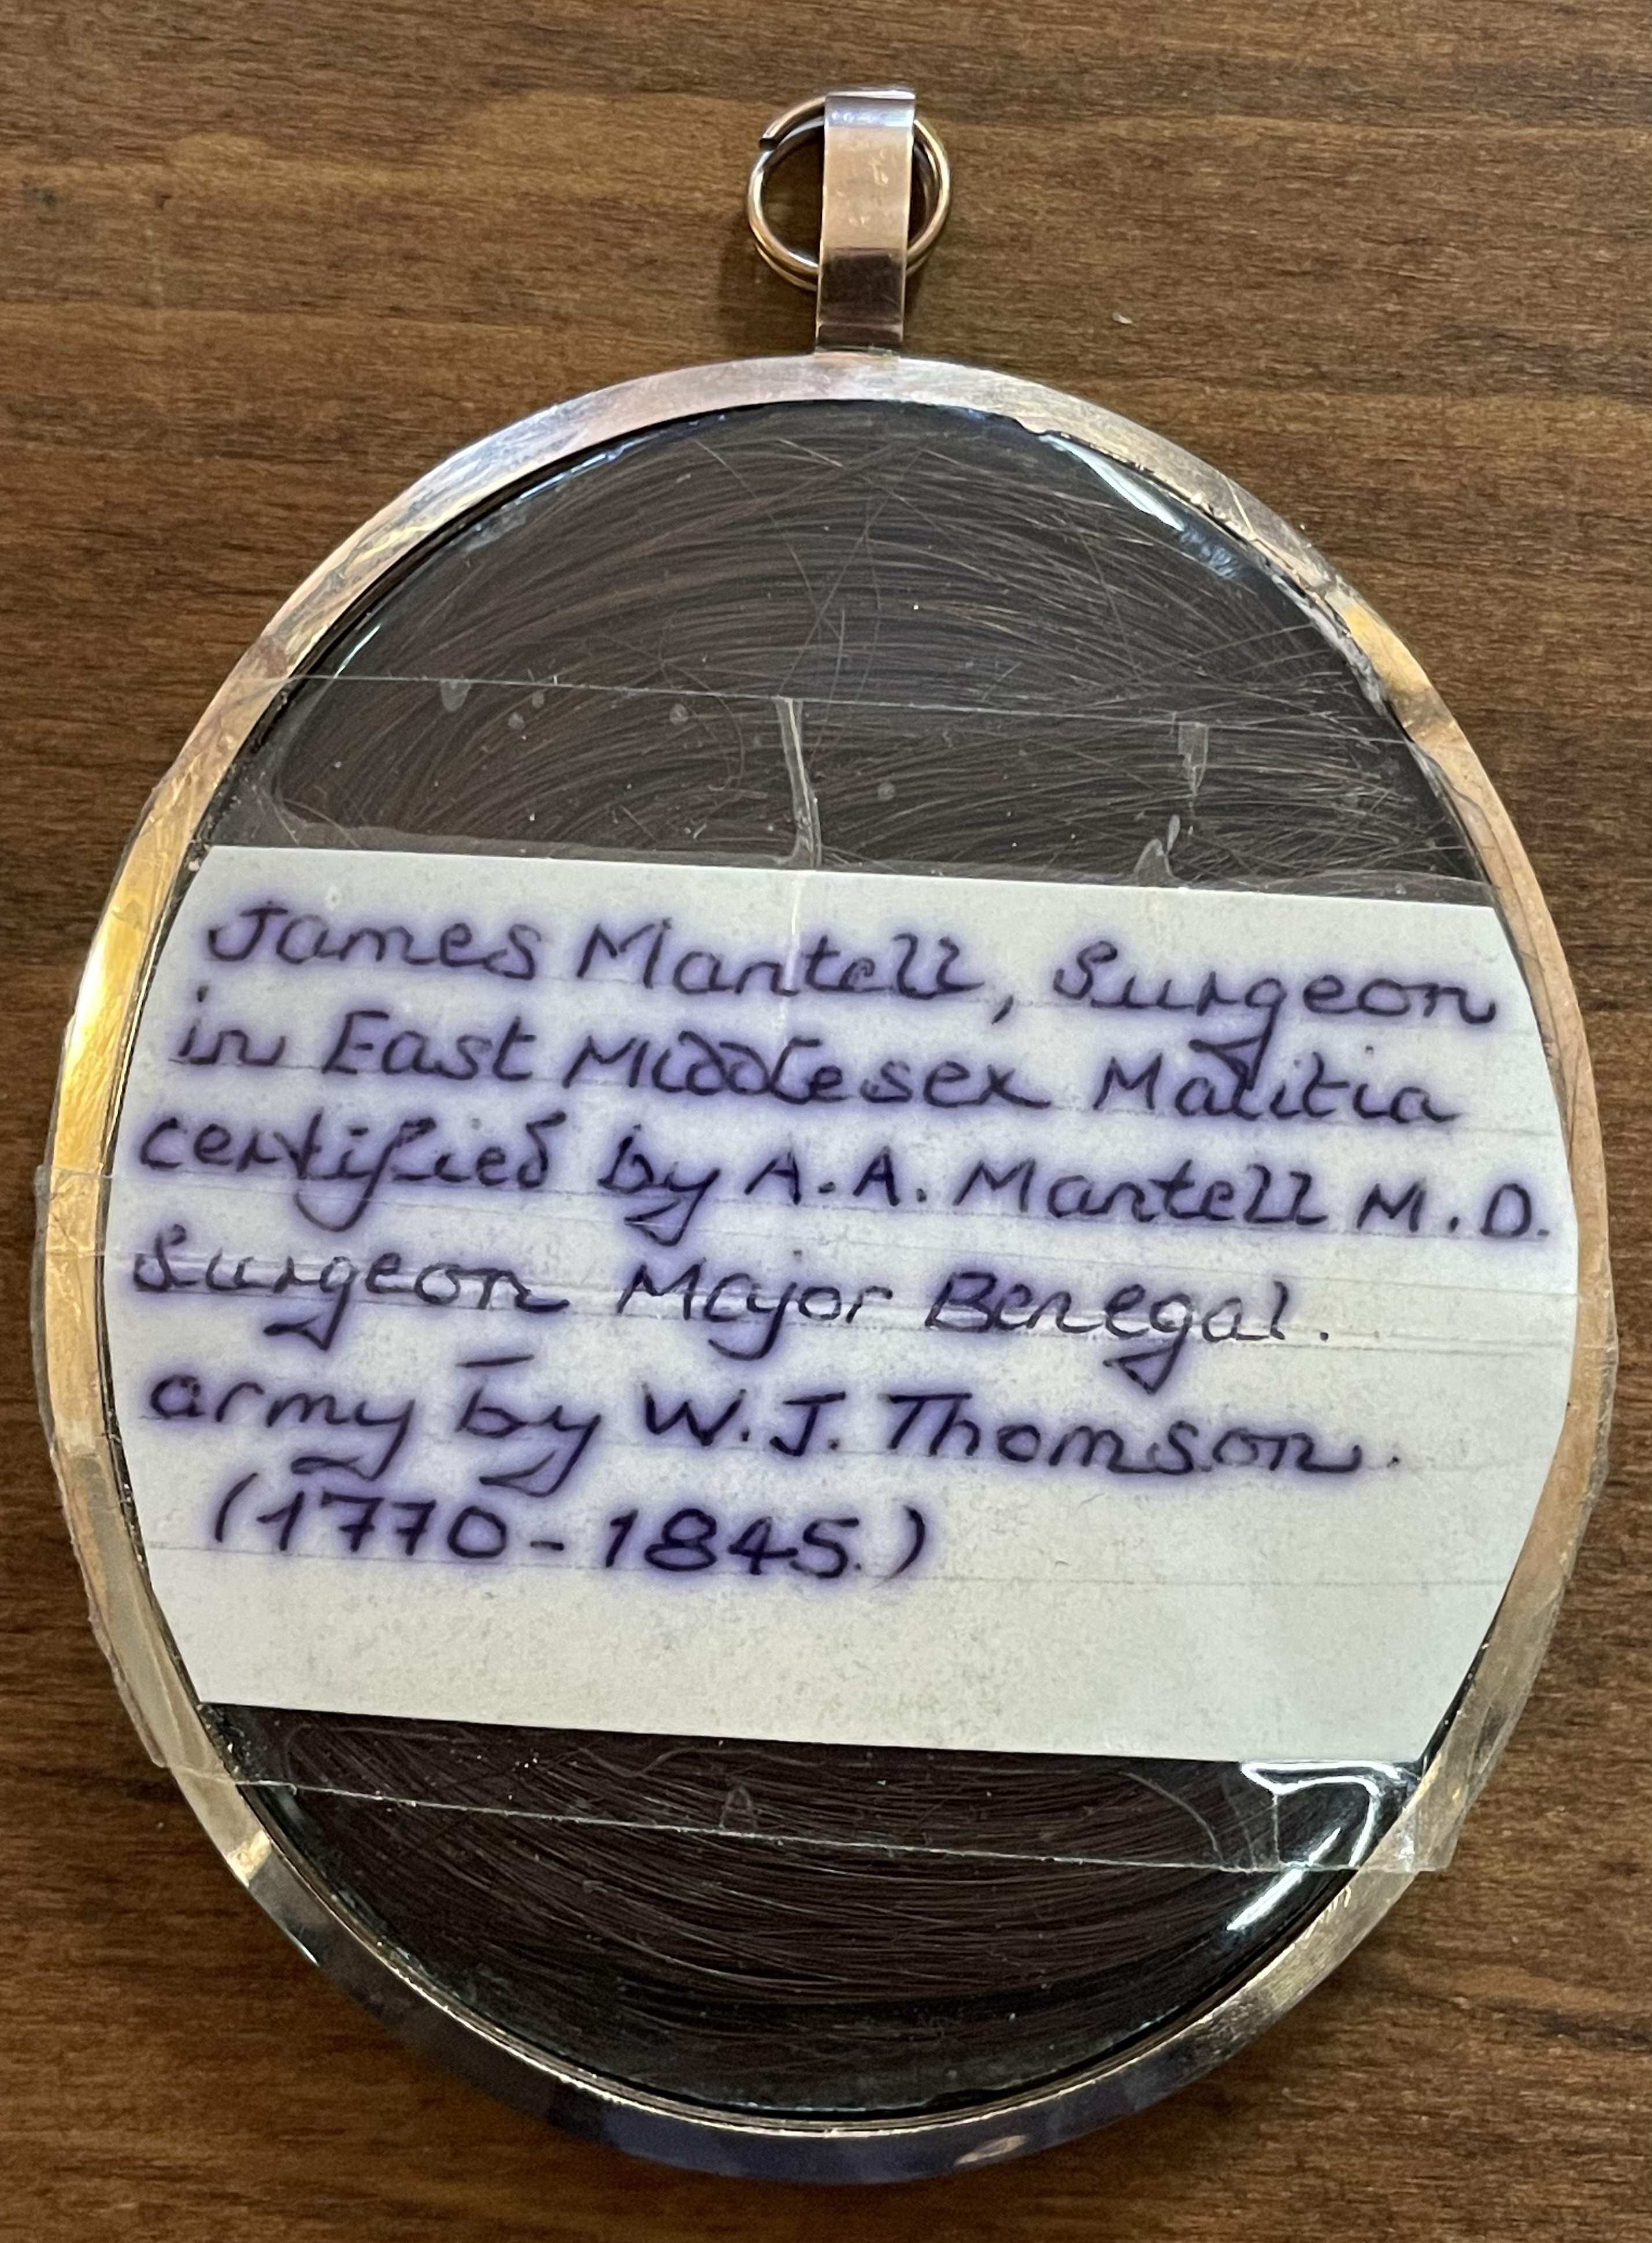 James Mantell, Surgeon
in East Middlesex Malitia
certified by A.A. Mantell M.D.
Surgeon Major Benegal.
army by W.J. Thomson.
(1770-1845.)